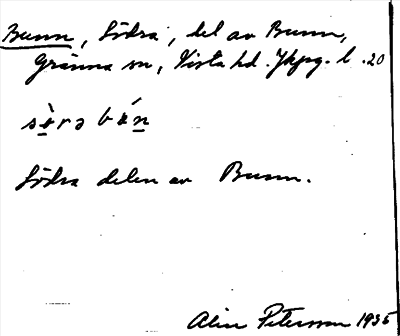 Bunn, Södra, del av Bunn,
Gränna sn, Vista hd. Jkpg. l. 20
sø̀rə bún
Södra delen av Bunn.
Alin Peterson 1935